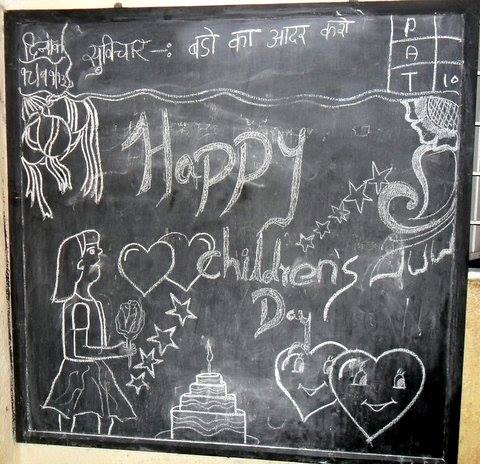 दिनांक
सुविचार -: बडो का आदर करो
P
A
T 10
Happy
Children's
Day